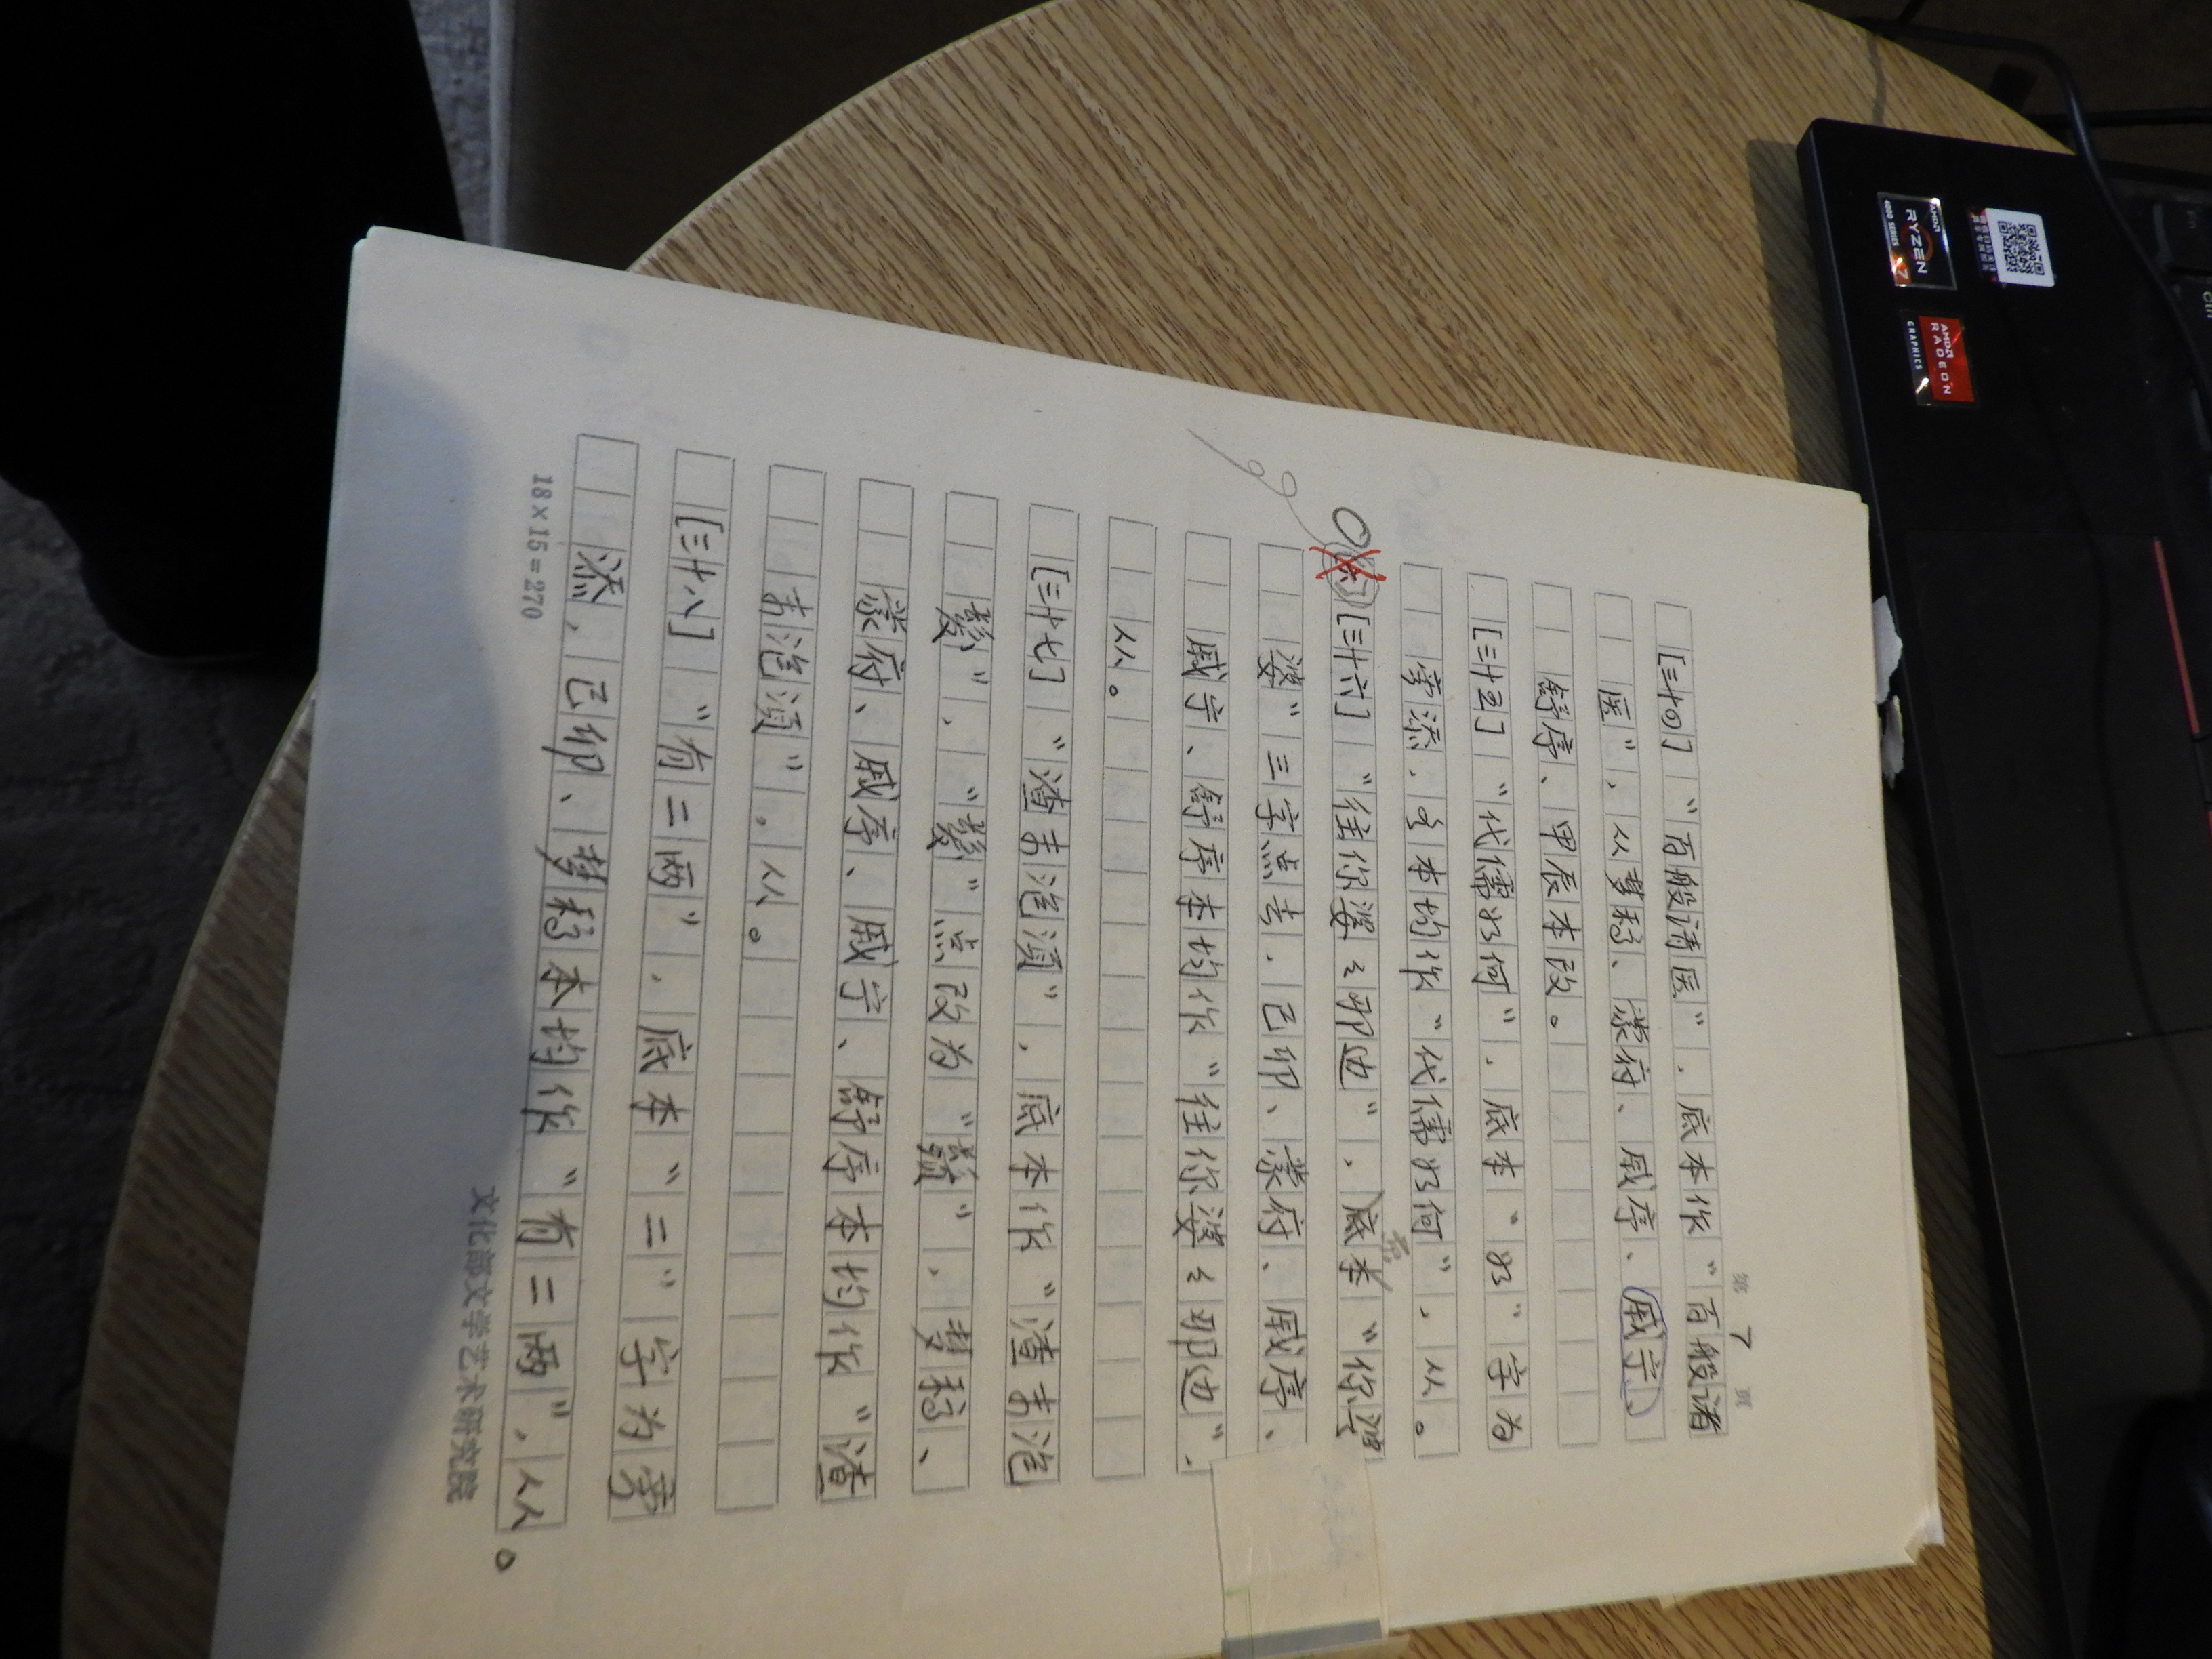 第 7 页
[三十四]“百般请医”，底本作“百般诸
医”，从梦稿、蒙府、戚序、戚宁、
舒序、甲辰本改。
[三十五]“代儒如何”，底本“如”字为
旁添，各本均作“代儒如何”，从。
[三十六]“往你婆々那边”，底本“你婆
婆”三字点去，己卯、蒙府、戚序、
戚宁、舒序本均作“往你婆々那边”，
从。
[三十七]“渣
底本作“渣
点改为
梦稿、
蒙府、戚序、戚宁、舒序本均作“渣
”，从。
[三十八]“有二两”，底本“二”字为旁
添，己卯、梦稿本均作“有二两”，从。
18×15=270
文化部文学艺术研究院
AMD
RYZEN
7
4000 SERIES
AMD
RADEON
GRAPHICS